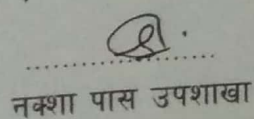 नक्शा पास उपशाखा